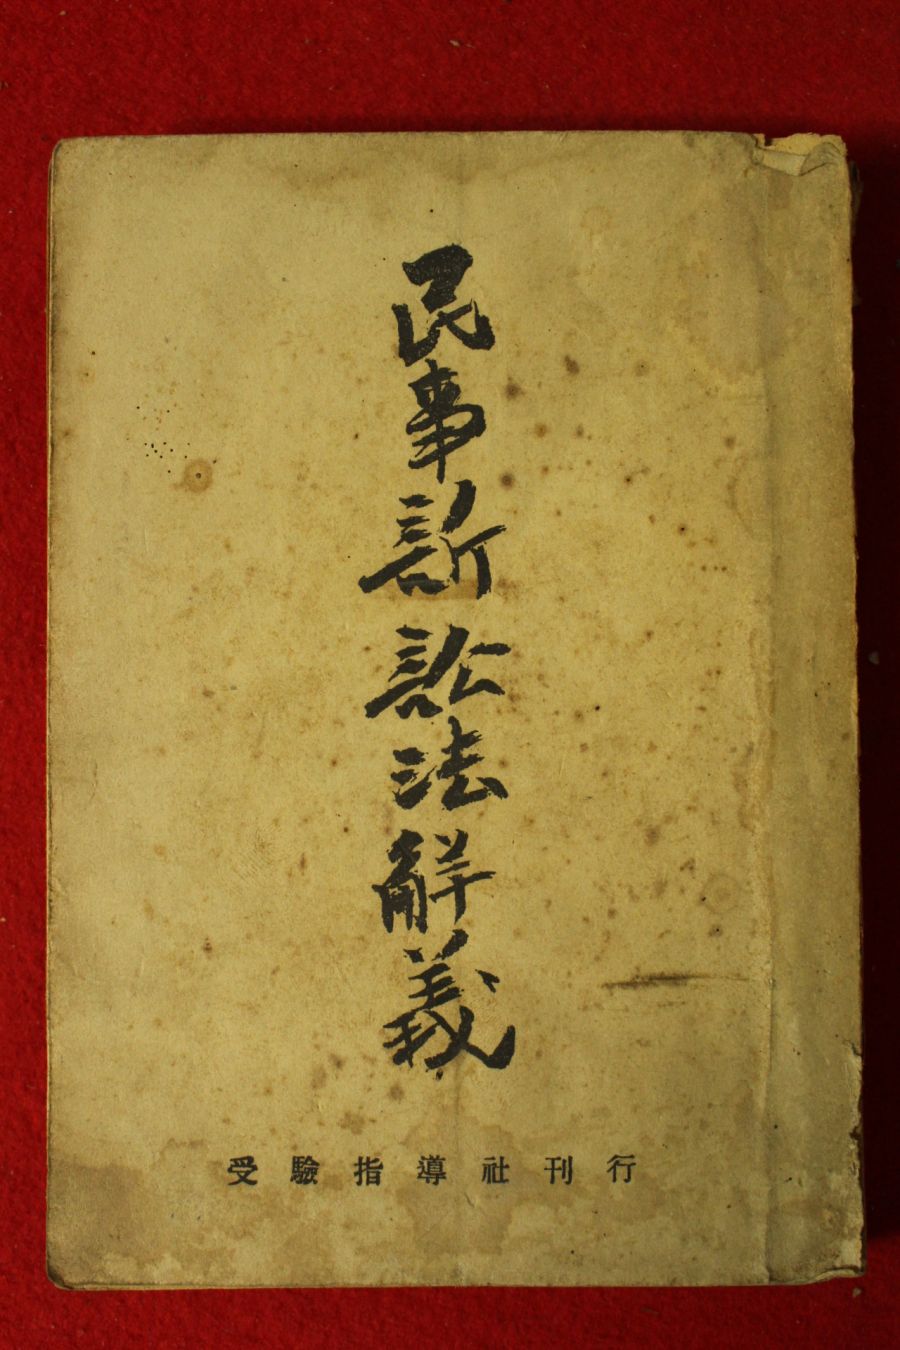 民事訴訟法解義
受驗指導社刊行